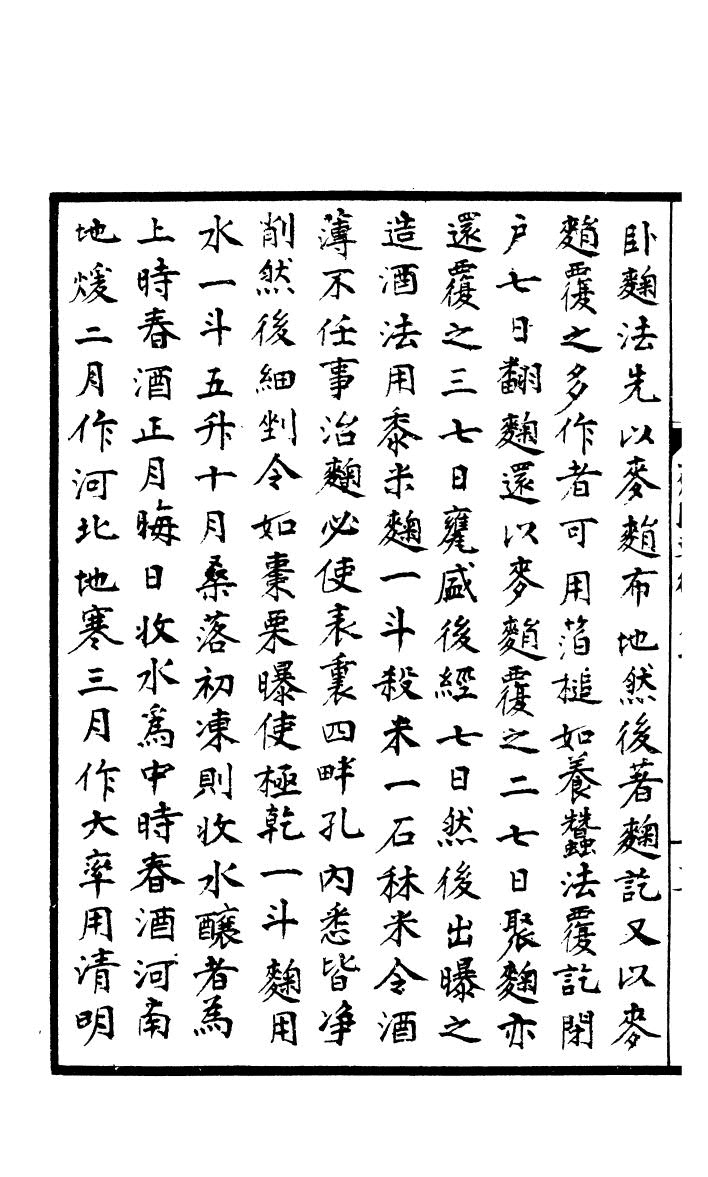 卧麴法先以麥䴷布地然後著麴訖又以麥
䴷覆之多作者可用箔槌如養蠶法覆訖閉
户七日翻麴還以麥䴷覆之二七日聚麴亦
還覆之三七日瓮盛後經七日然後出曝之
造酒法用黍米麴一斗殺米一石秫米令酒
薄不任事治麴必使表裏四畔孔内悉皆净
削然後細剉令如棗栗曝使極乾一斗麴用
水一斗五升十月桑落初凍則收水釀者為
上時春酒正月晦日收水為中時春酒河南
地煖二月作河北地寒三月作大率用清明